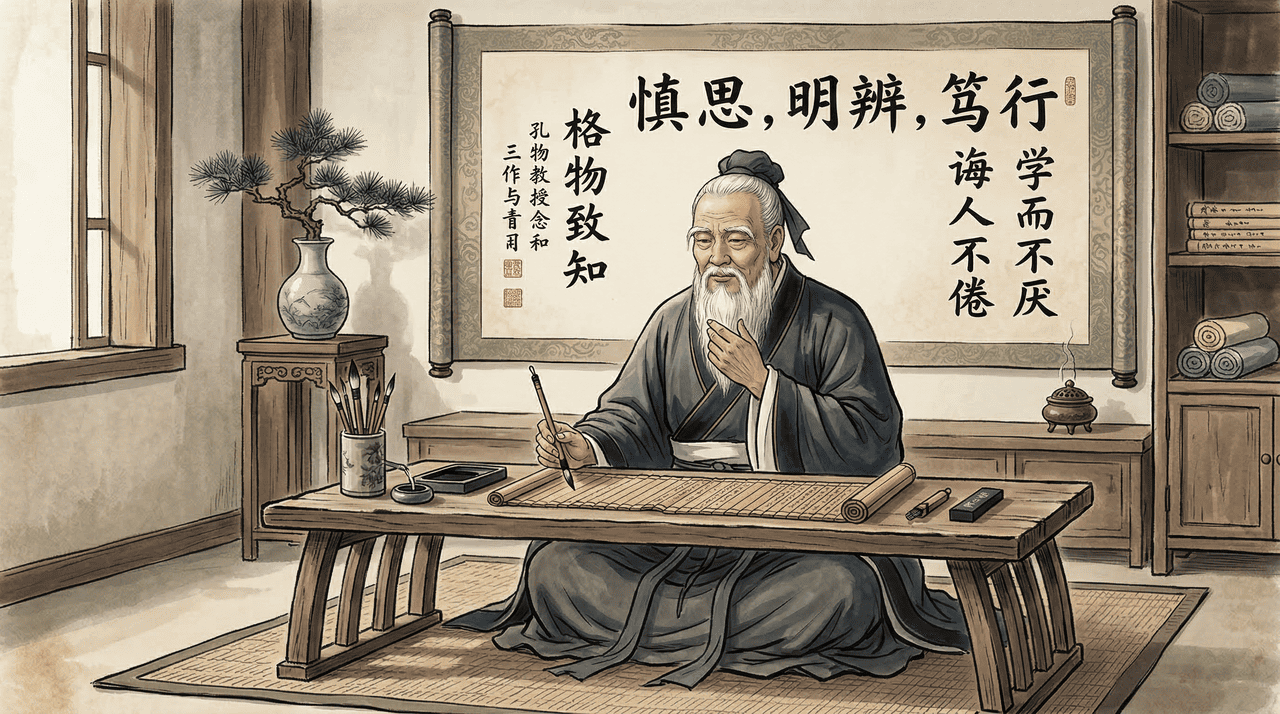 慎思,明辨,笃行
学而不厌
诲人不倦
格物致知
孔物教授念和
三作与青用